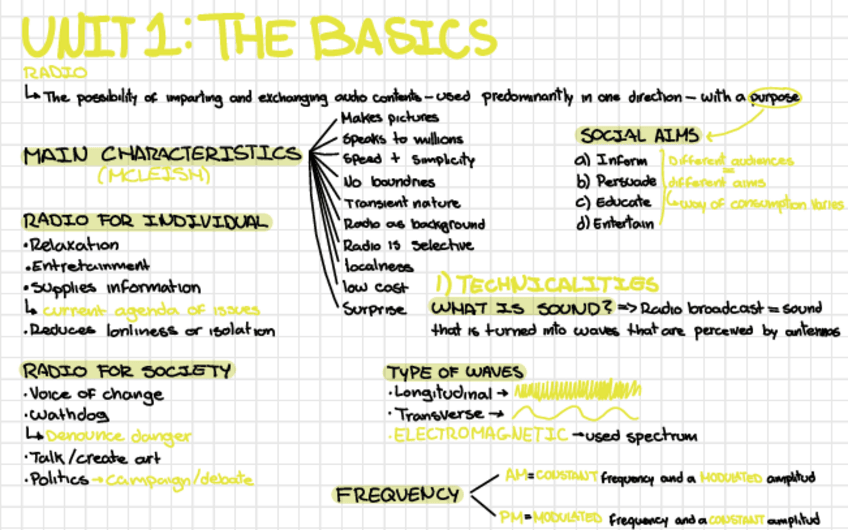 UNIT 1: THE BASICS
RADIO
↳ The possibility of imparting and exchanging audio contents - used predominantly in one direction - with a purpose
MAIN CHARACTERISTICS
(MCLEISH)
Makes pictures
Speaks to millions
Speed + Simplicity
No boundries
Transient nature
Radio as background
Radio is selective
localness
low cost
Surprise
SOCIAL AIMS
a) Inform
b) Persuade
c) Educate
d) Entertain
Different audiences
=
different aims
↳ way of consumption varies
RADIO FOR INDIVIDUAL
• Relaxation
• Entretainment
• Supplies information
↳ current agenda of issues
• Reduces lonliness or isolation
1) TECHNICALITIES
WHAT IS SOUND? => Radio broadcast = sound
that is turned into waves that are perceived by antennas
RADIO FOR SOCIETY
• Voice of change
• Wathdog
↳ Denounce danger
• Talk/create art
• Politics → campaign/debate
TYPE OF WAVES
• Longitudinal →
• Transverse →
• ELECTROMAGNETIC → used spectrum
FREQUENCY
AM = CONSTANT frequency and a MODULATED amplitud
PM = MODULATED frequency and a CONSTANT amplitud